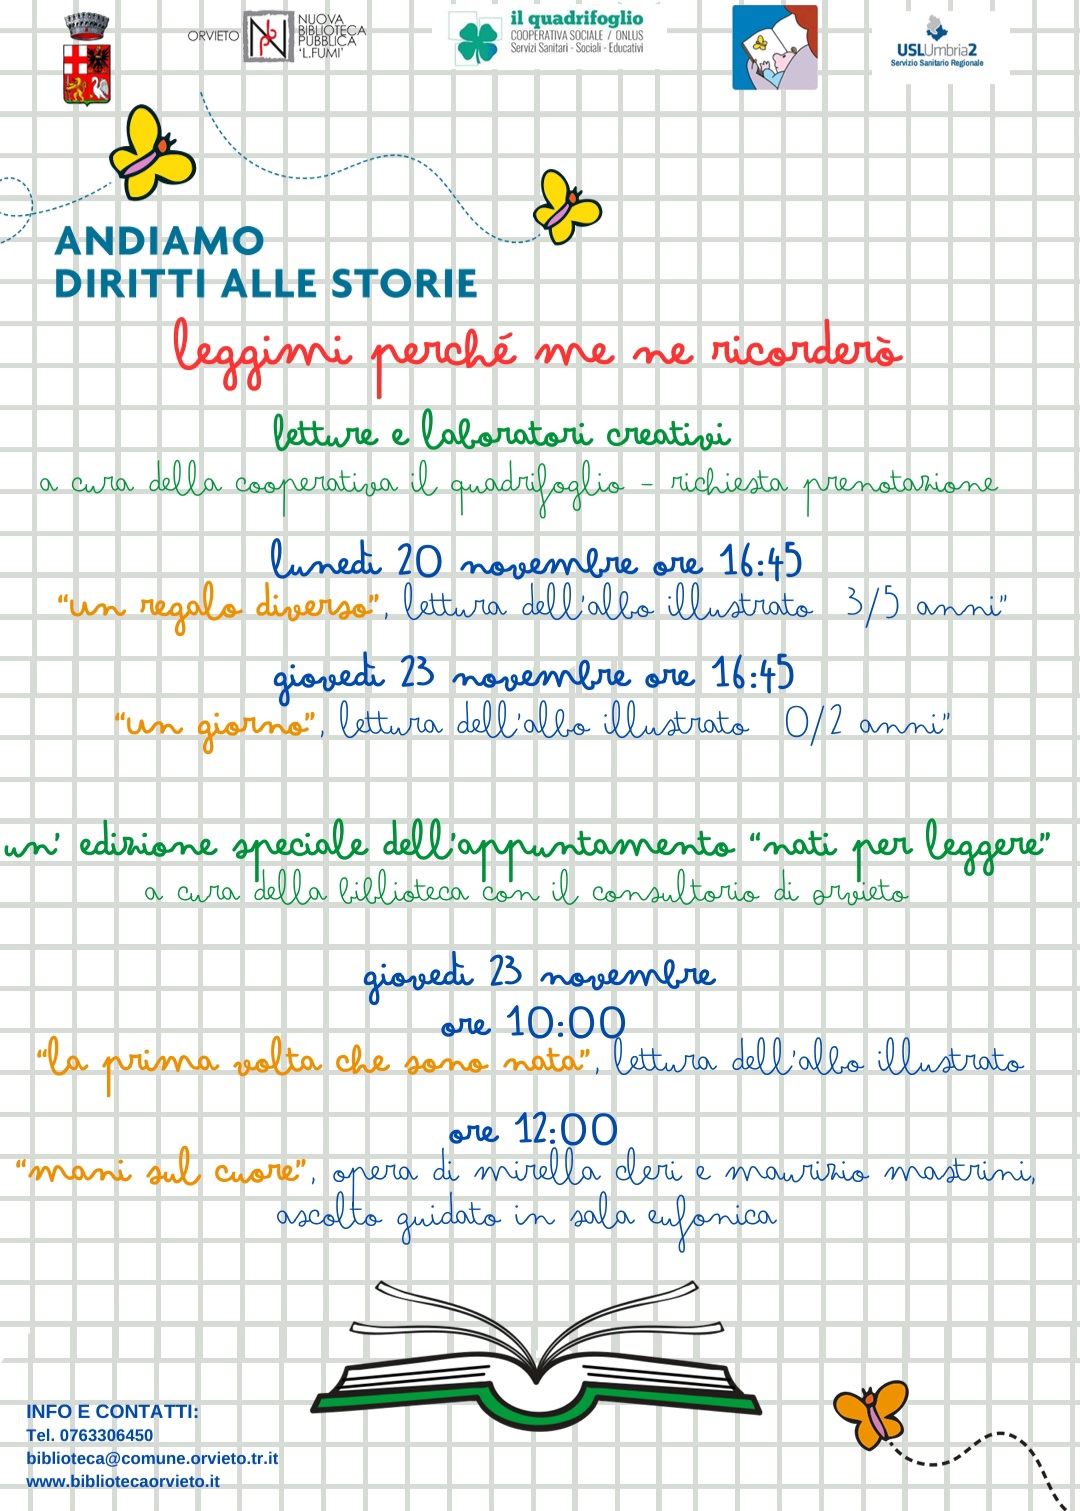 ORVIETO
NUOVA
BIBLIOTECA
PUBBLICA
'L.FUMI'
il quadrifoglio
COOPERATIVA SOCIALE / ONLUS
Servizi Sanitari - Sociali - Educativi
USLUmbria2
Servizio Sanitario Regionale
ANDIAMO
DIRITTI ALLE STORIE
leggimi perché me ne ricorderò
letture e laboratori creativi
a cura della cooperativa il quadrifoglio - richiesta prenotazione
lunedì 20 novembre ore 16:45
"un regalo diverso", lettura dell'albo illustrato 3/5 anni"
giovedì 23 novembre ore 16:45
"un giorno", lettura dell'albo illustrato 0/2 anni"
un' edizione speciale dell'appuntamento "nati per leggere"
a cura della biblioteca con il consultorio di orvieto
giovedì 23 novembre
ore 10:00
"la prima volta che sono nata", lettura dell'albo illustrato
ore 12:00
"mani sul cuore", opera di mirella cleri e maurizio mastrini,
ascolto guidato in sala eufonica
INFO E CONTATTI:
Tel. 0763306450
biblioteca@comune.orvieto.tr.it
www.bibliotecaorvieto.it